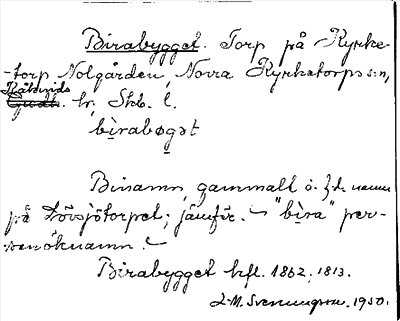 Birabygget. Torp på Kyrke-
torp Nolgården, Norra Kyrketorps s:n,
Kåkinds
Gudh. hr, Skb. l.
bìrabøgət
Binamn, gammalt o.
på Lövsjötorpet; jämför "bìra" per-
sonöknamn.
Birabygget hfl. 1862, 1813.
1950.